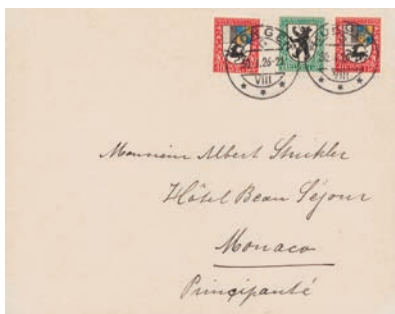 VIII
VIII
Monsieur Albert Strikler
Hôtel Beau Séjour
Monaco
Principauté